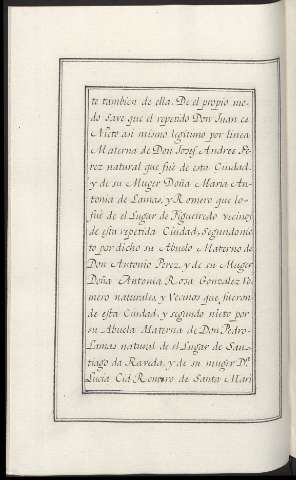 te tambien de ella. De el propio mo-
do save que el repetido Don Juan es
Nieto asi mismo legitimo por linea
Materna de Don Josef Andres Pe-
rez natural que fué de esta Ciudad,
y de su Muger Doña Maria An-
tonia de Lamas, y Romero que lo-
fué de el Lugar de Figueiredo vecinos
de esta repetida Ciudad, Segundo nie-
to por dicho su Abuelo Materno de
Don Antonio Perez, y de su Muger
Doña Antonia Rosa Gonzalez Ro-
mero naturales, y Vecinos que fueron
de esta Ciudad, y segundo nieto por
su Abuela Materna de Don Pedro-
Lamas natural de el Lugar de San-
tiago da Raveda, y de su muger D.ª
Lucia Cid Romero de Santa Mari